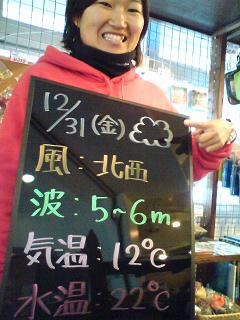 12/31(金)
風:北西
波:5~6m
気温:12℃
水温:22℃